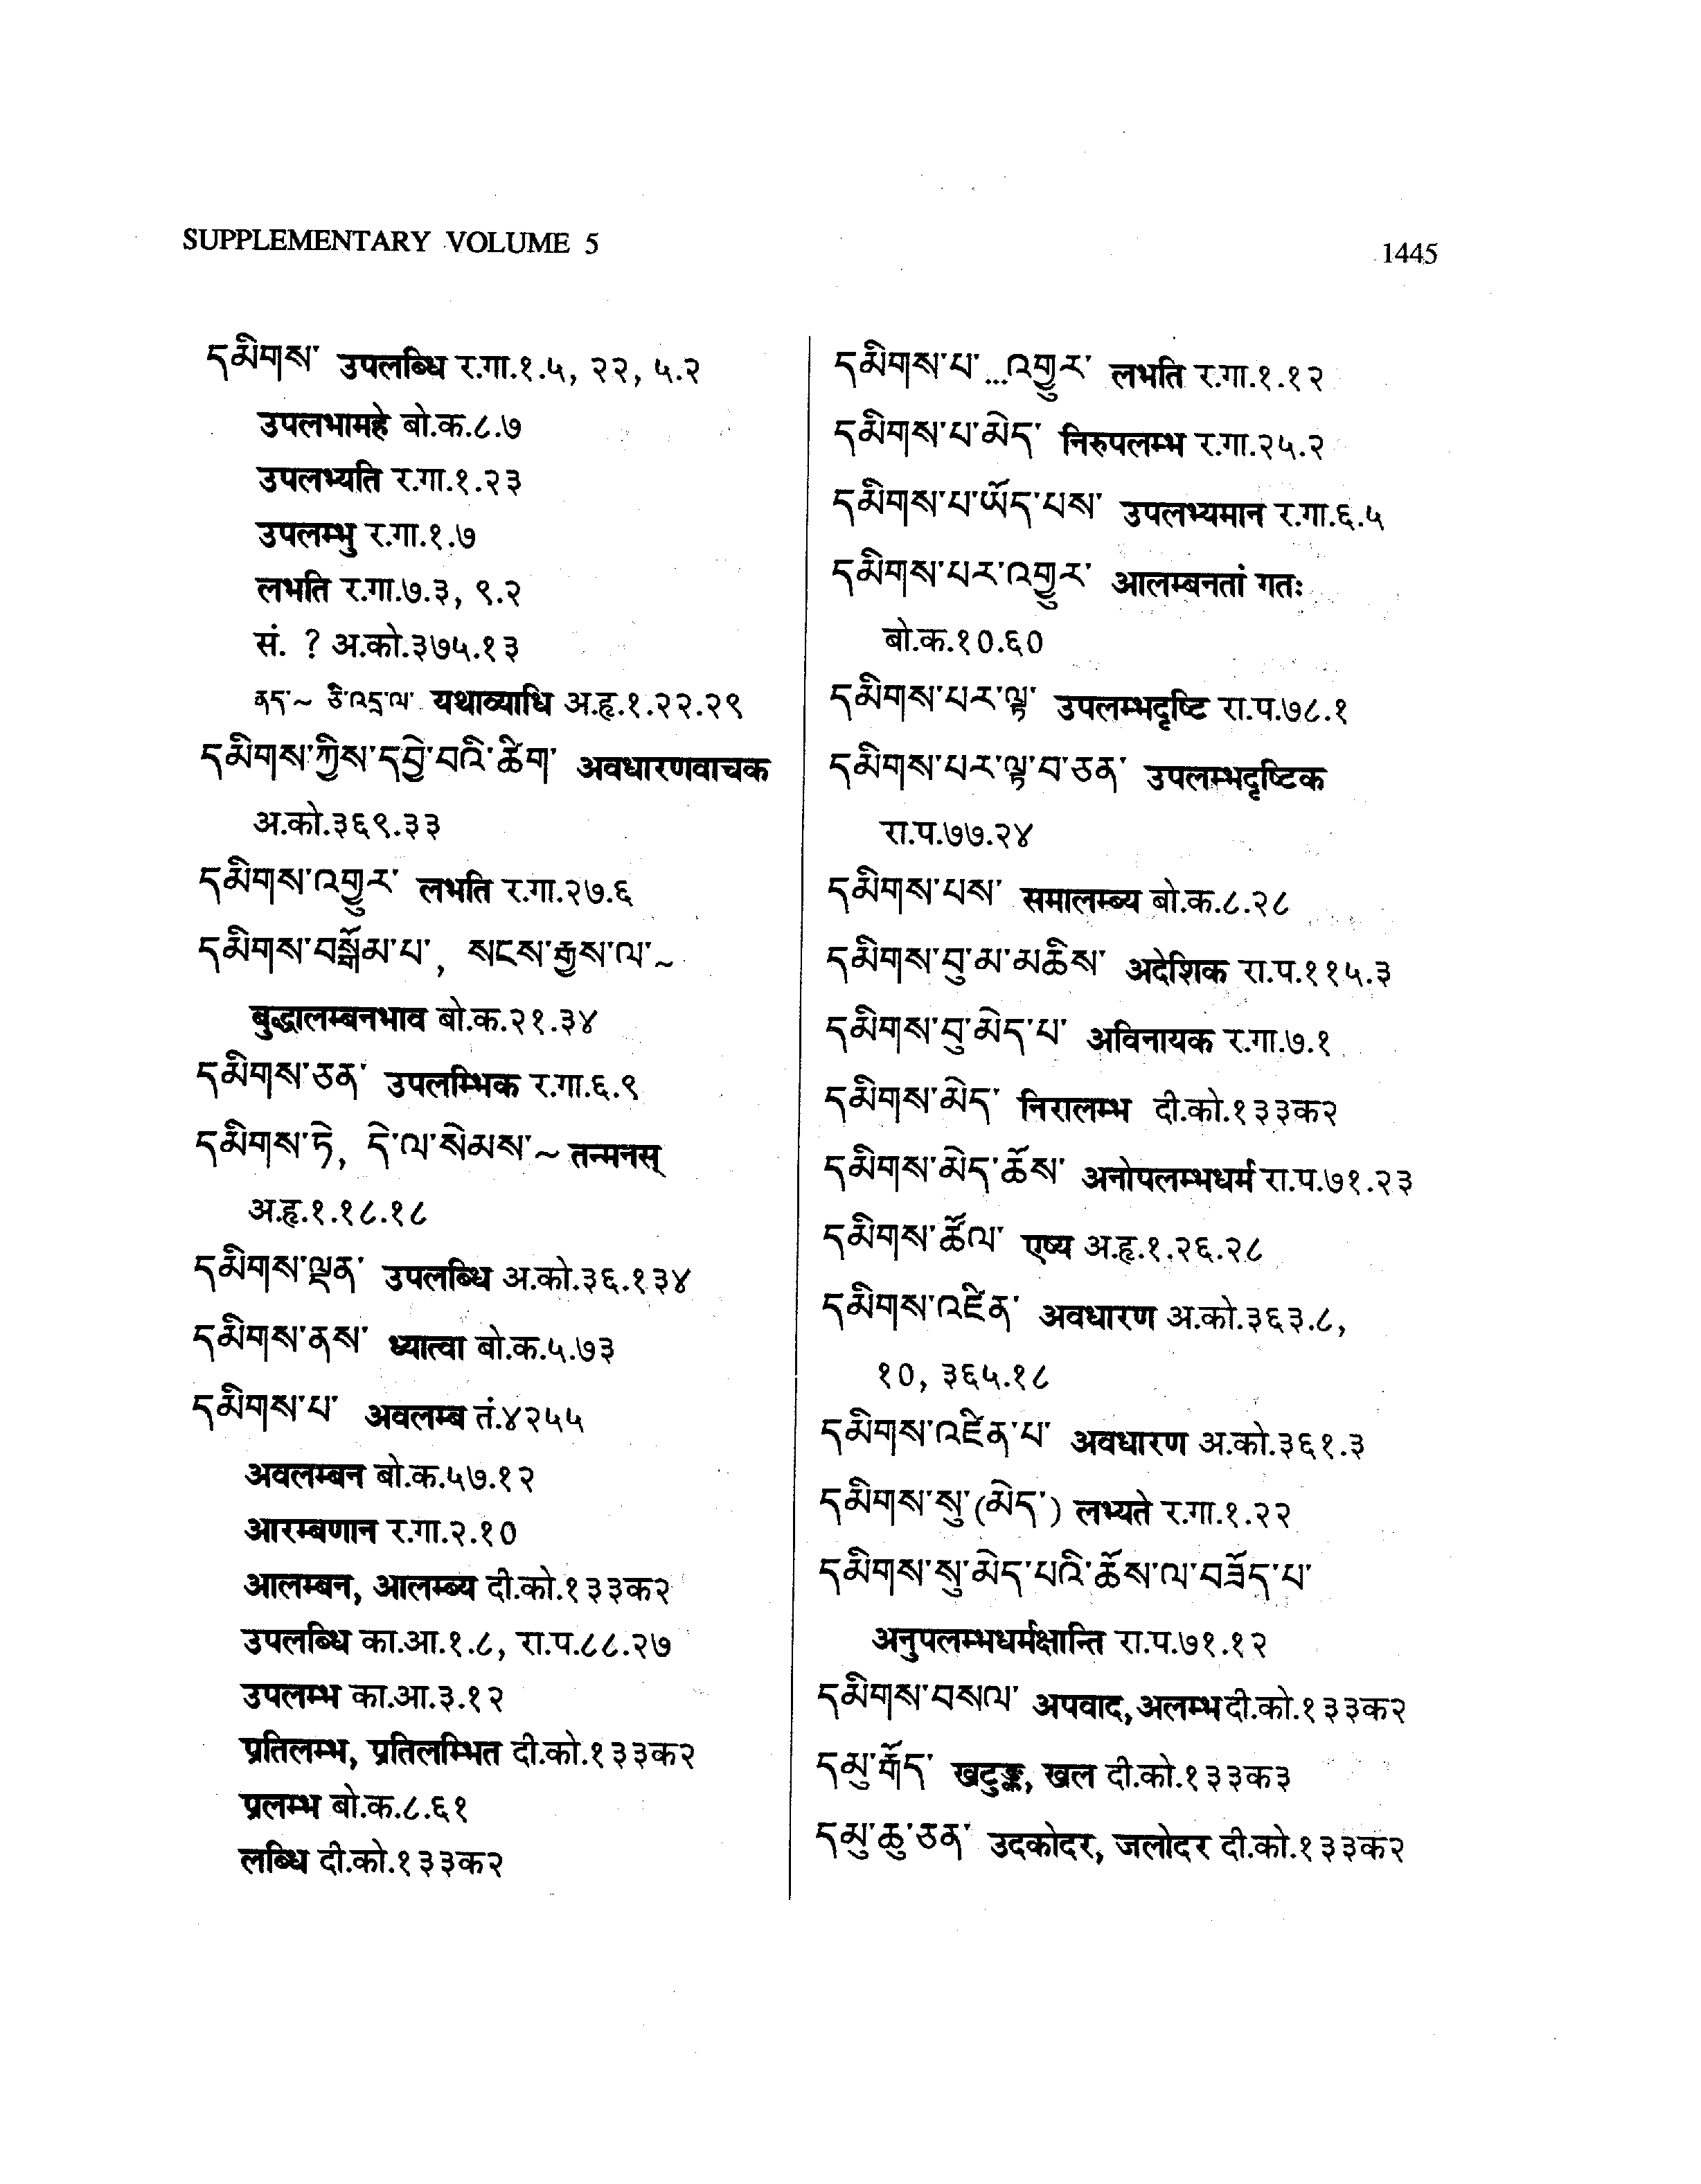 SUPPLEMENTARY VOLUME 5
1445
དམིགས་ उपलब्धि र.गा.१.५, २२, ५.२
उपलभामहे बो.क.८.७
उपलभ्यति र.गा.१.२३
उपलम्भु र.गा.१.७
लभति र.गा.७.३, ९.२
सं. ? अ.को.३७५.१३
ནད་~ ཅི་འདྲ་ལ་ यथाव्याधि अ.हृ.१.२२.२९
དམིགས་ཀྱིས་དབྱེ་བའི་ཚིག་ अवधारणवाचक
अ.को.३६९.३३
དམིགས་འགྱུར་ लभति र.गा.२७.६
དམིགས་བསྒོམ་པ་, སངས་རྒྱས་ལ་~
बुद्धालम्बनभाव बो.क.२१.३४
དམིགས་ཅན་ उपलम्भिक र.गा.६.९
དམིགས་ཏེ, དེ་ལ་སེམས་~ तन्मनस्
अ.हृ.१.१८.१८
དམིགས་ལྡན་ उपलब्धि अ.को.३६.१३४
དམིགས་ནས་ ध्यात्वा बो.क.५.७३
དམིགས་པ་ अवलम्ब तं.४२५५
अवलम्बन बो.क.५७.१२
आरम्बणान र.गा.२.१०
आलम्बन, आलम्ब्य दी.को.१३३क२
उपलब्धि का.आ.१.८, रा.प.८८.२७
उपलम्भ का.आ.३.१२
प्रतिलम्भ, प्रतिलम्भित दी.को.१३३क२
प्रलम्भ बो.क.८.६१
लब्धि दी.को.१३३क२
དམིགས་པ་...འགྱུར་ लभति र.गा.१.१२
དམིགས་པ་མེད་ निरुपलम्भ र.गा.२५.२
དམིགས་པ་ཡོད་པས་ उपलभ्यमान र.गा.६.५
དམིགས་པར་འགྱུར་ आलम्बनतां गतः
बो.क.१०.६०
དམིགས་པར་ལྟ་ उपलम्भदृष्टि रा.प.७८.१
དམིགས་པར་ལྟ་བ་ཅན་ उपलम्भदृष्टिक
रा.प.७७.२४
དམིགས་པས་ समालम्ब्य बो.क.८.२८
དམིགས་བུ་མ་མཆིས་ अदेशिक रा.प.११५.३
དམིགས་བུ་མེད་པ་ अविनायक र.गा.७.१
དམིགས་མེད་ निरालम्भ दी.को.१३३क२
དམིགས་མེད་ཆོས་ अनोपलम्भधर्म रा.प.७१.२३
དམིགས་ཚོལ་ एष्य अ.हृ.१.२६.२८
དམིགས་འཛིན་ अवधारण अ.को.३६३.८,
१०, ३६५.१८
དམིགས་འཛིན་པ་ अवधारण अ.को.३६१.३
དམིགས་སུ་(མེད་) लभ्यते र.गा.१.२२
དམིགས་སུ་མེད་པའི་ཆོས་ལ་བཟོད་པ་
अनुपलम्भधर्मक्षान्ति रा.प.७१.१२
དམིགས་བསལ་ अपवाद, अलम्भ दी.को.१३३क२
དམུ་རྒོད་ खटुङ्क, खल दी.को.१३३क३
དམུ་ཆུ་ཅན་ उदकोदर, जलोदर दी.को.१३३क२